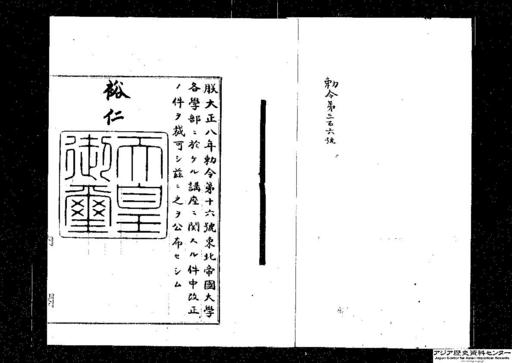 勅令第三百六號
朕大正八年勅令第十六號東北帝國大學
各學部ニ於ケル講座ニ關スル件中改正
ノ件ヲ裁可シ茲ニ之ヲ公布セシム
裕仁
天皇
御璽
アジア歴史資料センター
Japan Center for Asian Historical Records